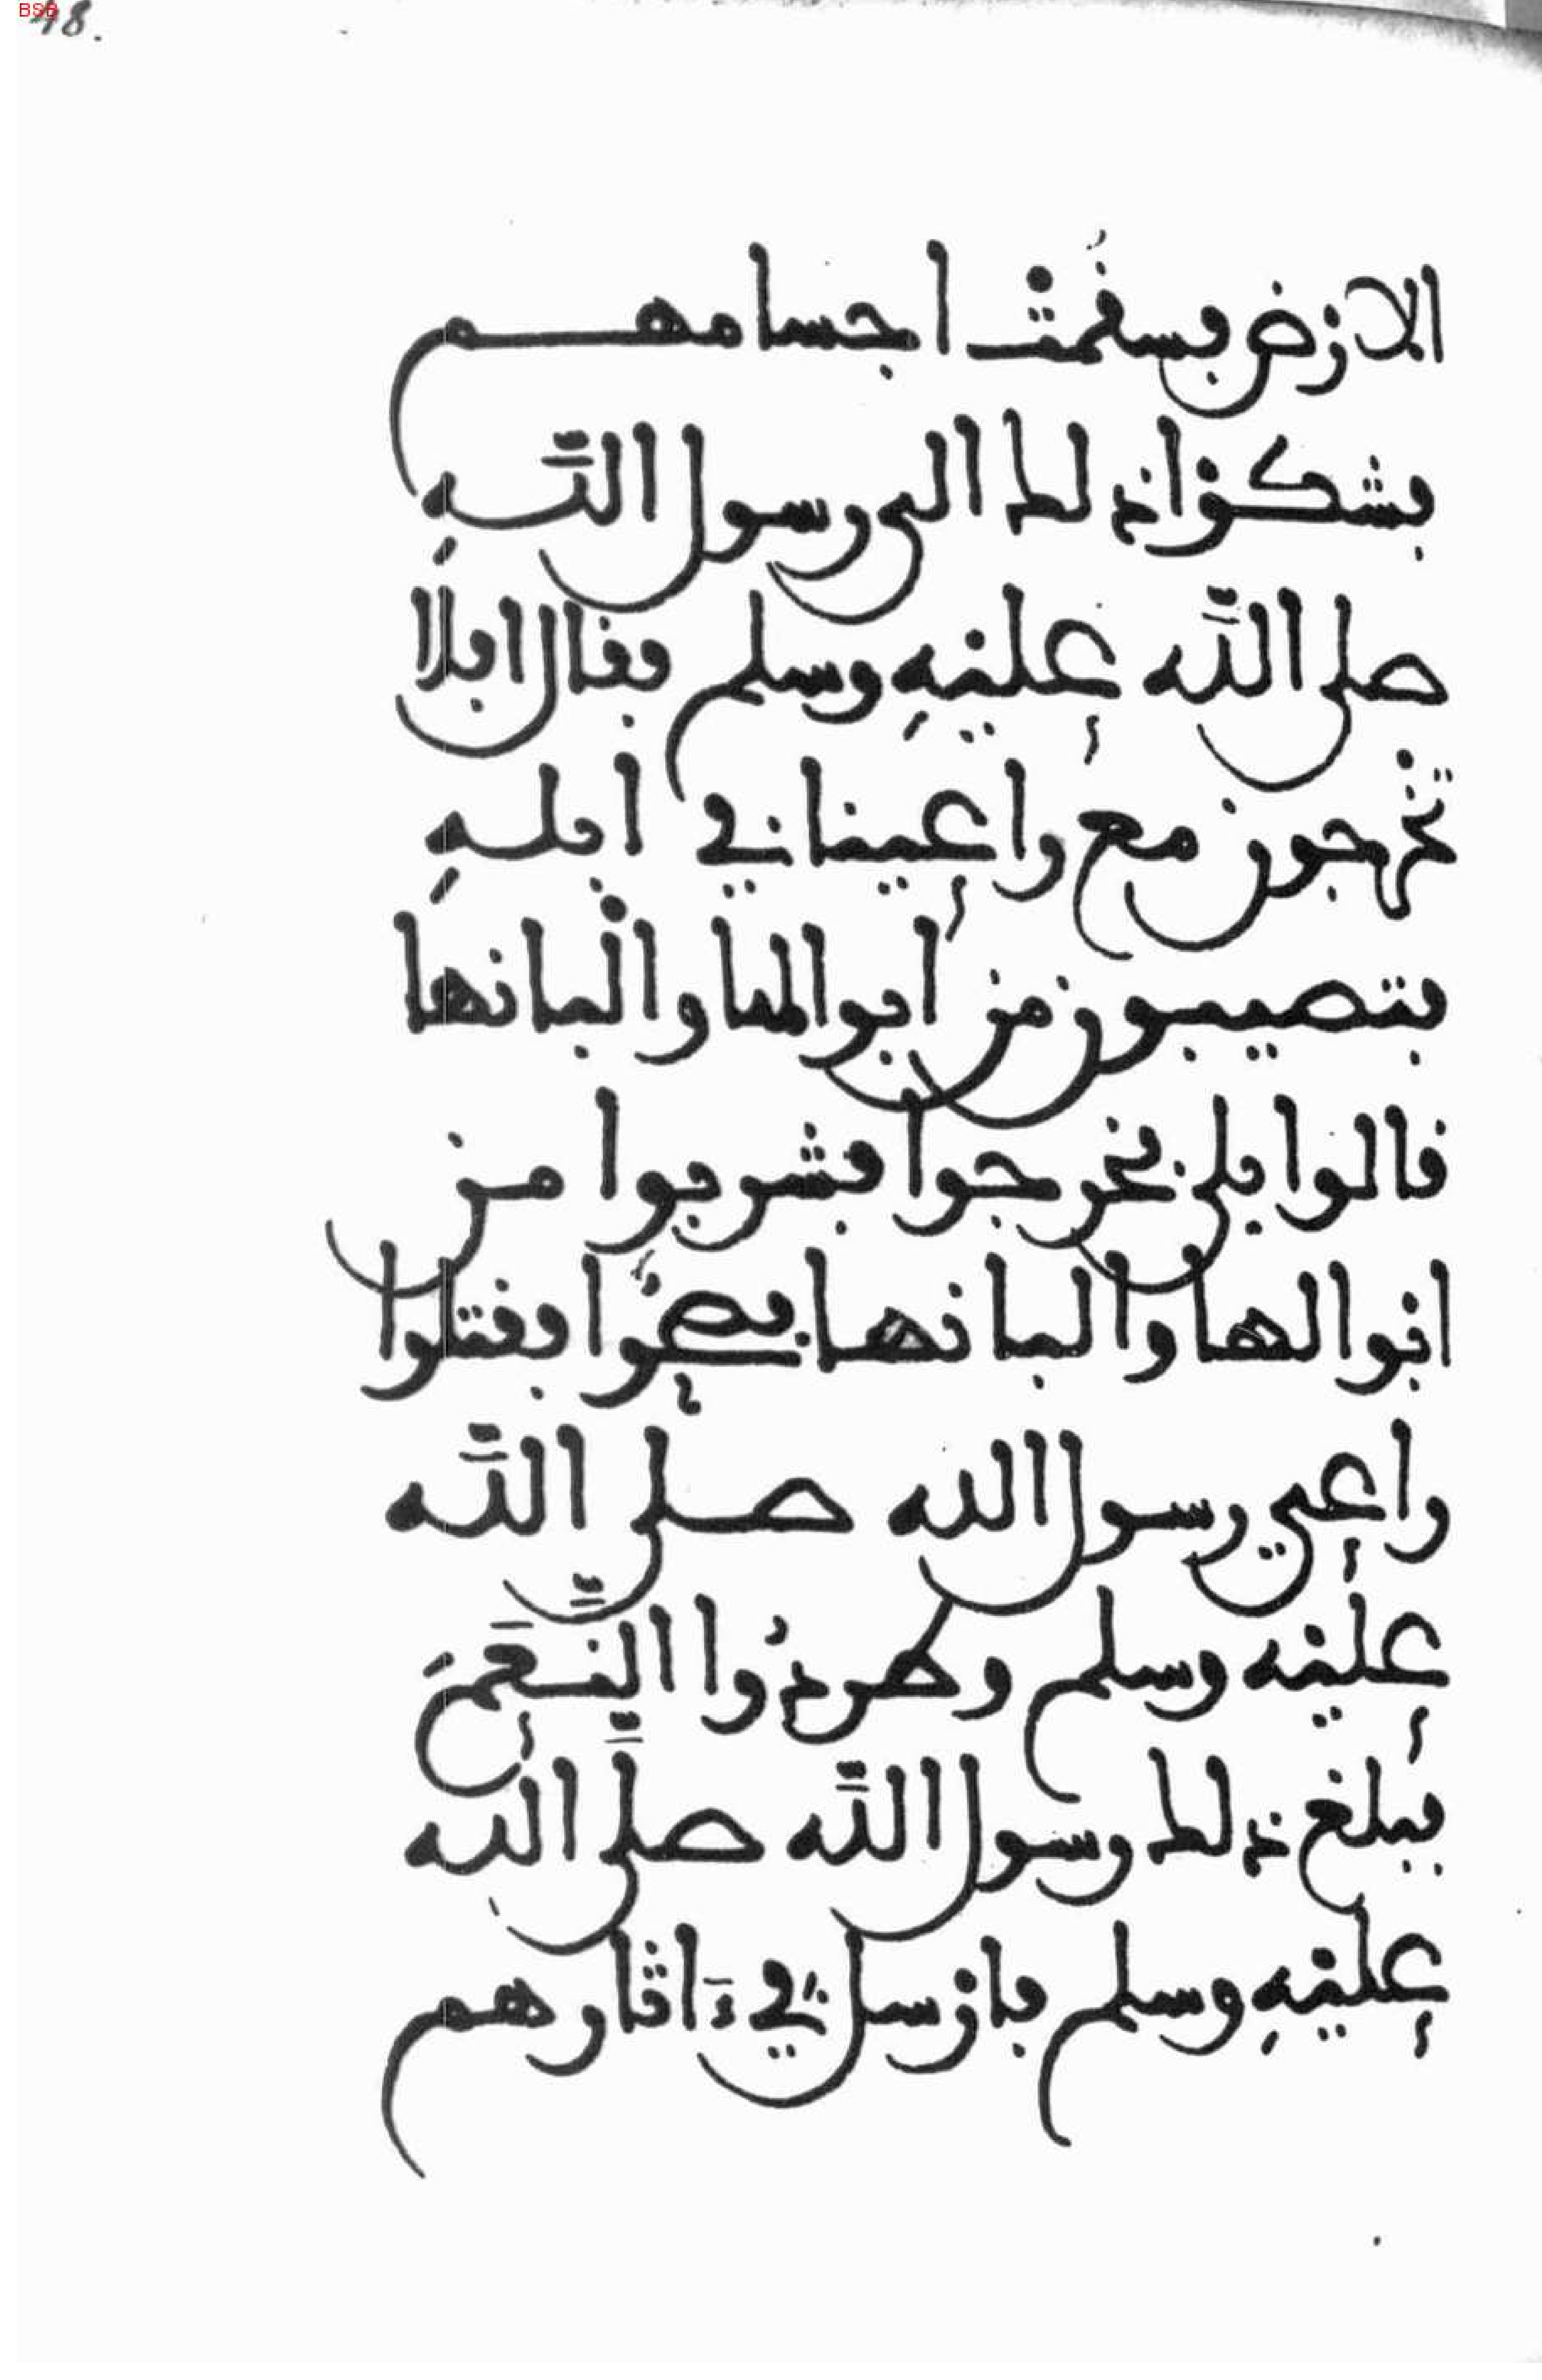 BSB
48.
الارض فسقمت اجسامهم
فشكوا ذلك الى رسول الله
صلى الله عليه وسلم فقال افلا
تخرجون مع راعينا في ابله
فتصيبون من ابوالها والبانها
قالوا بلى فخرجوا فشربوا من
ابوالها والبانها فصحوا فقتلوا
راعي رسول الله صلى الله
عليه وسلم وطردوا النعم
فبلغ ذلك رسول الله صلى الله
عليه وسلم فارسل في ءاثارهم